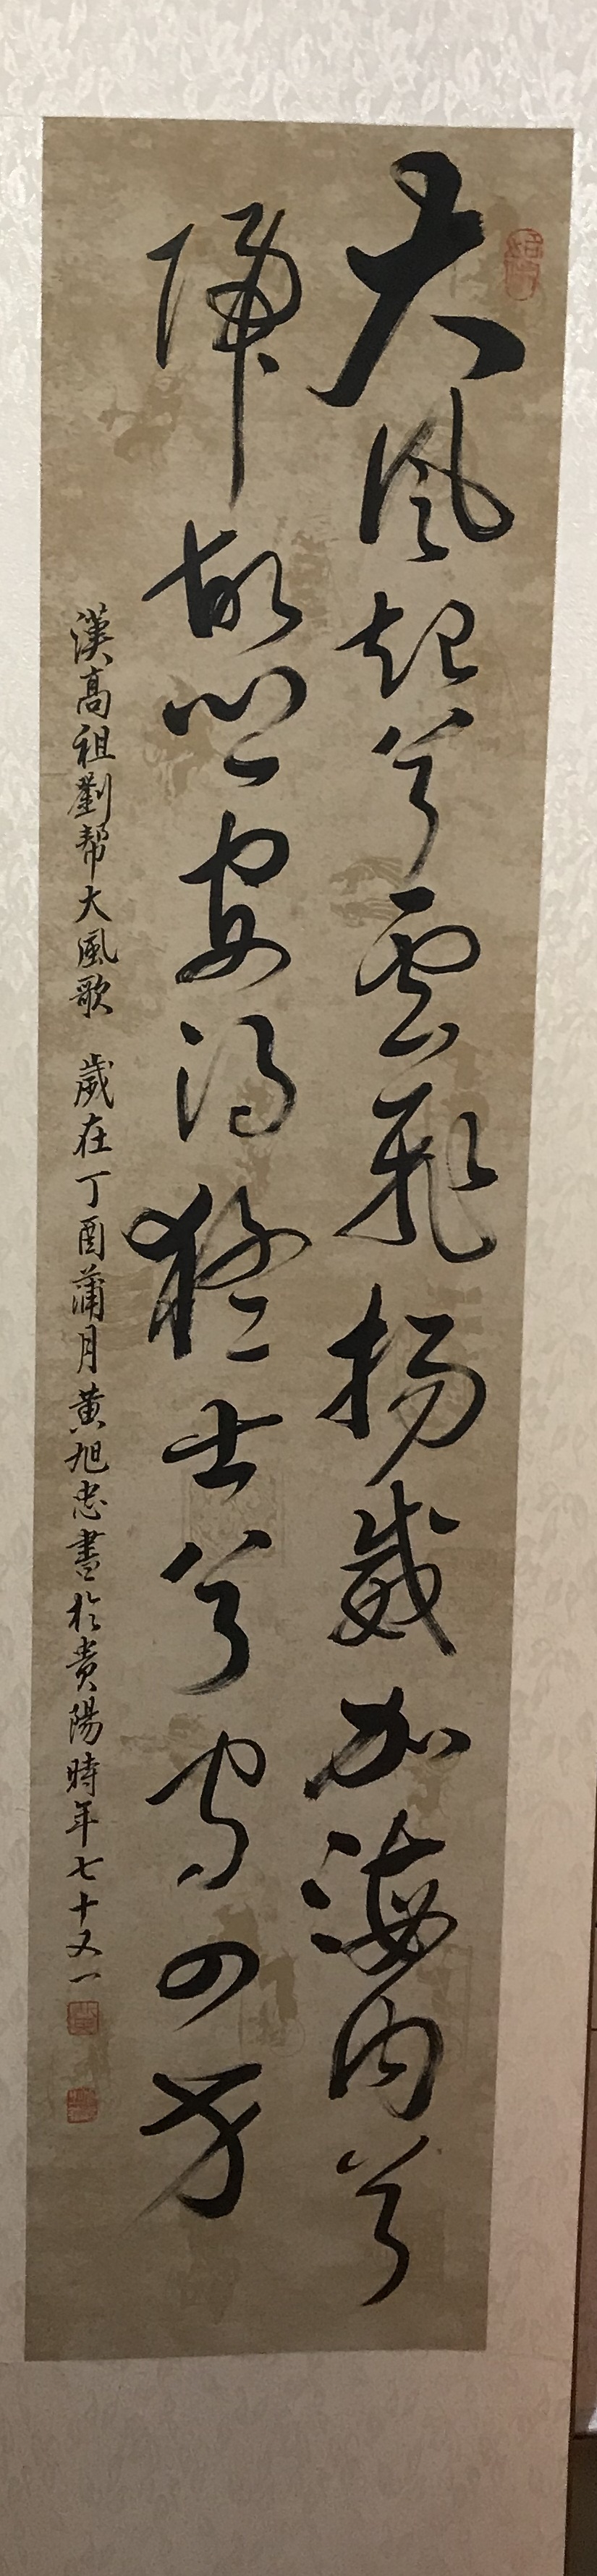 大風起兮雲飛揚威加海内兮
歸故鄉安得猛士兮守四方
漢高祖劉帮大風歌 歲在丁酉蒲月黄旭忠書於貴陽時年七十又一